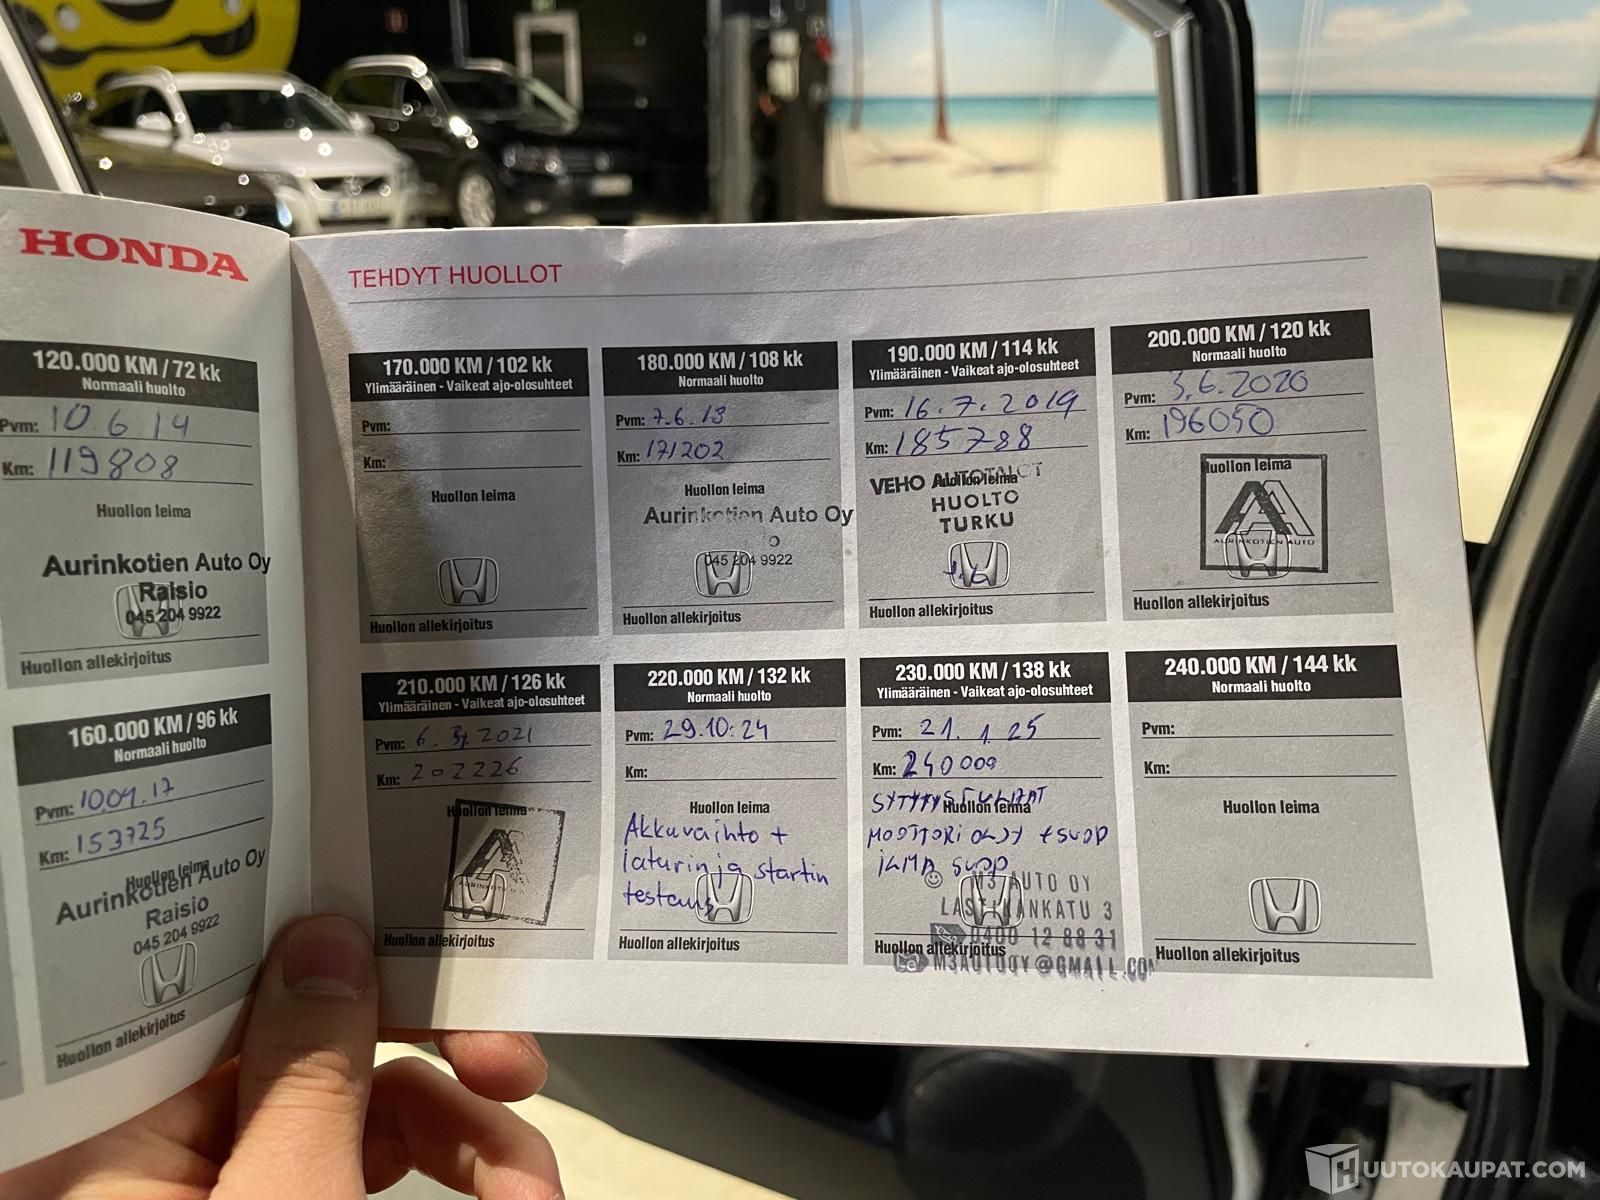 HONDA
120.000 KM / 72 kk
Normaali huolto
Pvm: 10.6.14
Km: 119808
Huollon leima
Aurinkotien Auto Oy
Raisio
045 204 9922
Huollon allekirjoitus
160.000 KM / 96 kk
Normaali huolto
Pvm: 10.09.17
Km: 153725
Huollon leima
Aurinkotien Auto Oy
Raisio
045 204 9922
Huollon allekirjoitus
TEHDYT HUOLLOT
170.000 KM / 102 kk
Ylimääräinen - Vaikeat ajo-olosuhteet
Pvm:
Km:
Huollon leima
Huollon allekirjoitus
180.000 KM / 108 kk
Normaali huolto
Pvm: 7.6.18
Km: 171202
Huollon leima
Aurinkotien Auto Oy
045 204 9922
Huollon allekirjoitus
190.000 KM / 114 kk
Ylimääräinen - Vaikeat ajo-olosuhteet
Pvm: 16.7.2019
Km: 185788
Huollon leima
VEHO AUTOTALOT
HUOLTO
TURKU
Huollon allekirjoitus
200.000 KM / 120 kk
Normaali huolto
Pvm: 3.6.2020
Km: 196050
Huollon leima
AURINKOTIEN AUTO
Huollon allekirjoitus
210.000 KM / 126 kk
Ylimääräinen - Vaikeat ajo-olosuhteet
Pvm: 2021
Km: 202226
Huollon leima
Huollon allekirjoitus
220.000 KM / 132 kk
Normaali huolto
Pvm: 29.10.24
Km:
Huollon leima
Akkuvaihto +
laturin ja startin
testaus
Huollon allekirjoitus
230.000 KM / 138 kk
Ylimääräinen - Vaikeat ajo-olosuhteet
Pvm: 21.1.25
Km: 240000
Huollon leima
SYTYTYSTULPAT
MOOTTORI ÖLJY + SUOD
ILMA SUOD
M3 AUTO OY
LASTIKANKATU 3
0400 12 88 31
M3AUTOOY@GMAIL.COM
Huollon allekirjoitus
240.000 KM / 144 kk
Normaali huolto
Pvm:
Km:
Huollon leima
Huollon allekirjoitus
HUUTOKAUPAT.COM